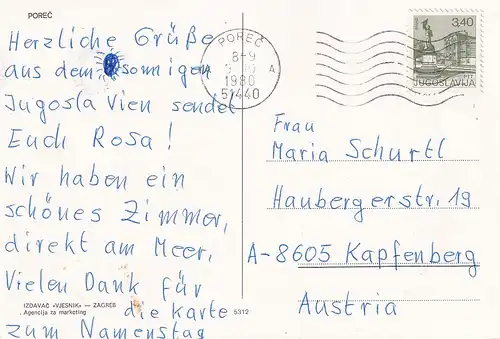 POREČ
Herzliche Grüße
aus dem sonnigen
Jugosla Vien sendet
Euch Rosa!
Wir haben ein
schönes Zimmer,
direkt am Meer.
Vielen Dank für
die Karte
zum Namenstag
IZDAVAČ «VJESNIK» — ZAGREB
Agencija za marketing
5312
POREČ
8-9
A
1980
51440
3,40
JUGOSLAVIJA
Frau
Maria Schurtl
Haubergerstr. 19
A-8605 Kapfenberg
Austria